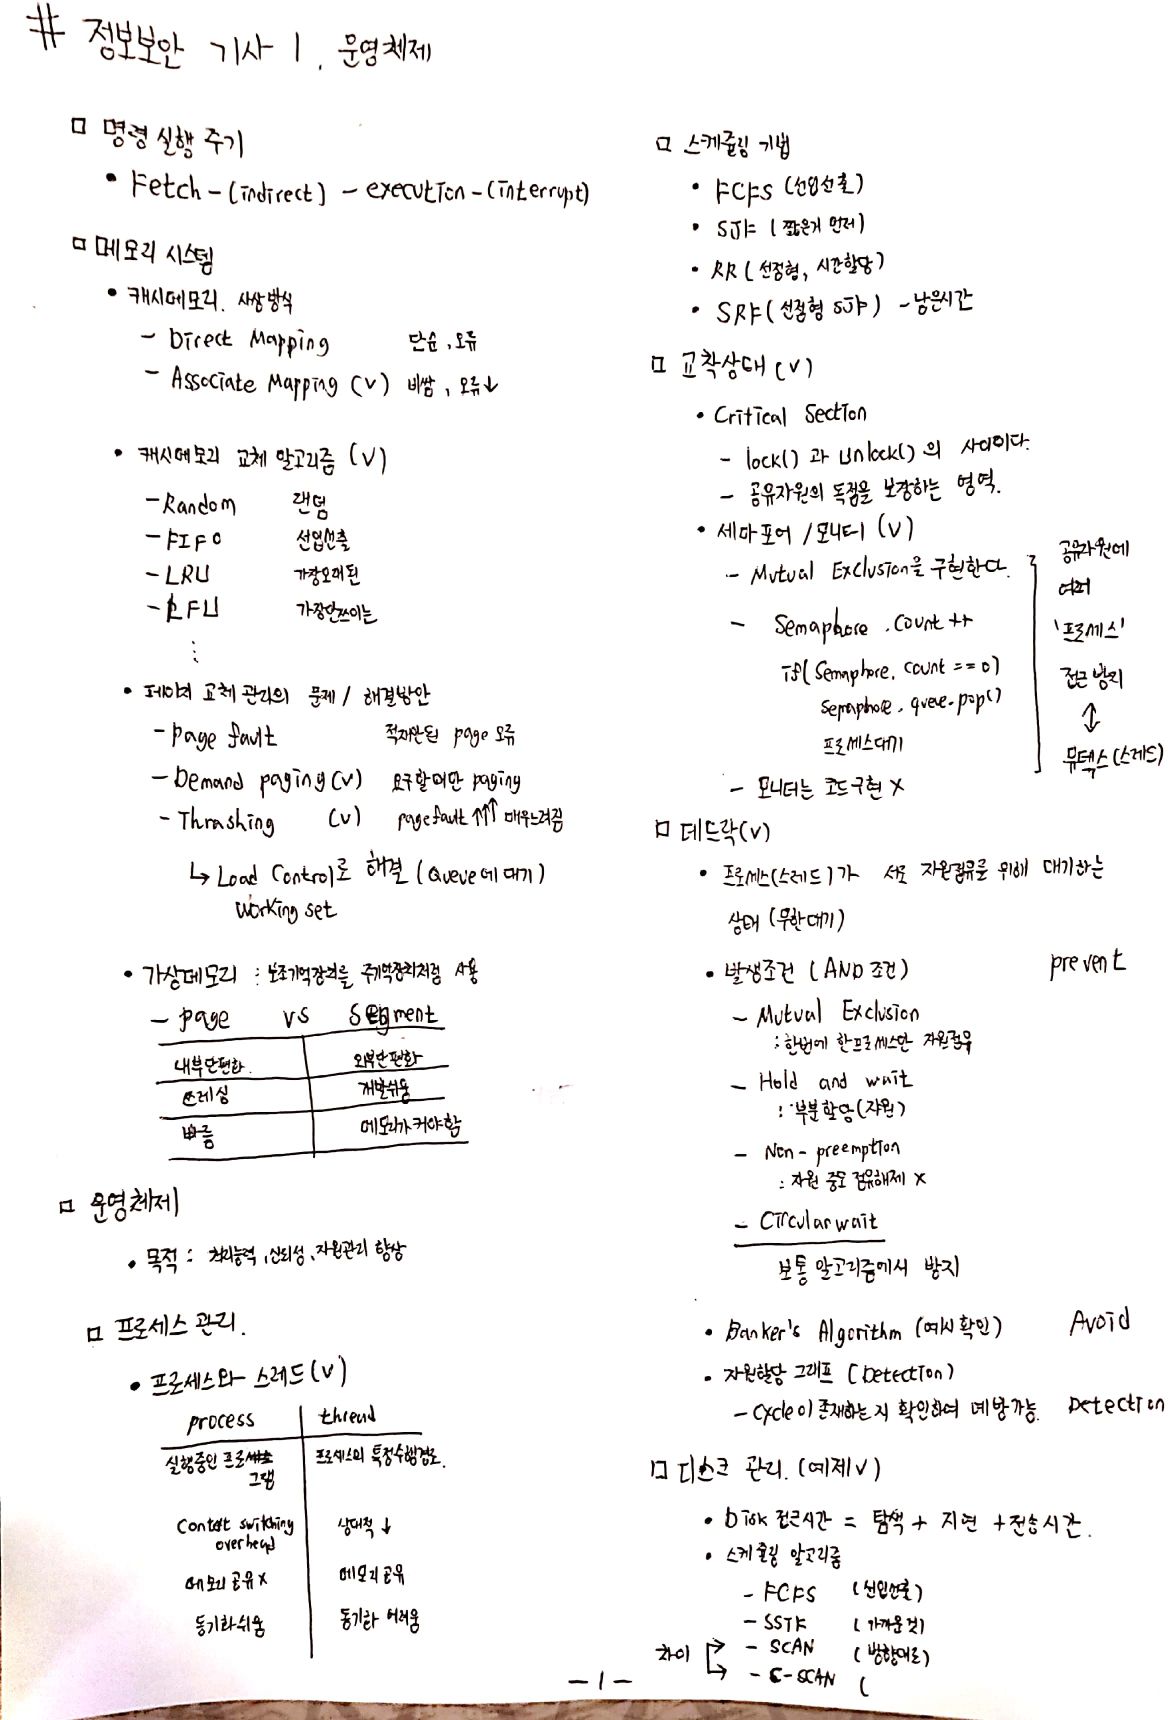 # 정보보안 기사 1. 운영체제
□ 명령 실행 주기
• Fetch - (indirect) - execution - (interrupt)
□ 메모리 시스템
• 캐시메모리. 사상방식
- Direct Mapping 단순, 오류
- Associate Mapping (v) 비쌈, 오류↓
• 캐시메모리 교체 알고리즘 (v)
- Random 랜덤
- FIFO 선입선출
- LRU 가장오래된
- LFU 가장안쓰이는
⋮
• 페이지 교체 관리의 문제 / 해결방안
- page fault 적재안된 page 오류
- Demand paging (v) 요구할때만 paging
- Thrashing (v) page fault ↑↑↑ 매우느려짐
↳ Load Control로 해결 (Queue에 대기)
working set
• 가상메모리 : 보조기억장치를 주기억장치처럼 사용
- page vs Segment
내부단편화. 외부단편화
쓰레싱 개발쉬움
빠름 메모리가커야함
□ 운영체제
• 목적 : 처리능력, 신뢰성, 자원관리 향상
□ 프로세스 관리.
• 프로세스와 스레드 (v)
process thread
실행중인 프로그램 프로세스의 특정수행경로.
Context switching 상대적 ↓
overhead
메모리 공유 x 메모리 공유
동기화쉬움 동기화 어려움
□ 스케줄링 기법
• FCFS (선입선출)
• SJF (짧은거 먼저)
• RR (선점형, 시간할당)
• SRF (선점형 SJF) - 남은시간
□ 교착상태 (v)
• Critical Section
- lock() 과 unlock() 의 사이이다.
- 공유자원의 독점을 보장하는 영역.
• 세마포어 / 모니터 (v)
- Mutual Exclusion을 구현한다.
- Semaphore.count++
if(Semaphore.count == 0)
semaphore.queue.pop()
프로세스대기
- 모니터는 코드구현 x
공유자원에
여러
'프로세스'
접근 방지
↕
뮤텍스 (스레드)
□ 데드락(v)
• 프로세스(스레드)가 서로 자원점유를 위해 대기하는
상태 (무한대기)
• 발생조건 (AND 조건) prevent
- Mutual Exclusion
: 한번에 한프로세스만 자원점유
- Hold and wait
: 부분할당(자원)
- Non-preemption
: 자원 중도 점유해제 x
- Circular wait
보통 알고리즘에서 방지
• Banker's Algorithm (예시 확인) Avoid
• 자원할당 그래프 (Detection)
- Cycle이 존재하는지 확인하여 예방가능. Detection
□ 디스크 관리. (예제v)
• Disk 접근시간 = 탐색 + 지연 + 전송시간.
• 스케줄링 알고리즘
- FCFS (선입선출)
- SSTF (가까운것)
차이 - SCAN (방향대로)
- C-SCAN (
- 1 -